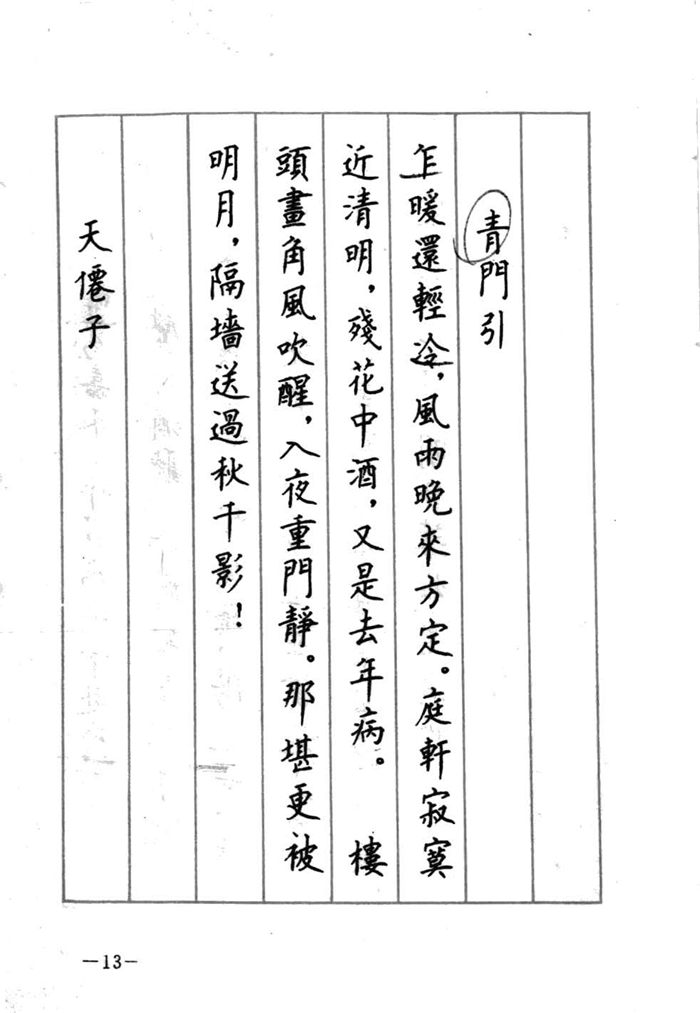 青門引
乍暖還輕冷，風雨晚來方定。庭軒寂寞
近清明，殘花中酒，又是去年病。　樓
頭畫角風吹醒，入夜重門靜。那堪更被
明月，隔墻送過秋千影！
天僊子
—13—